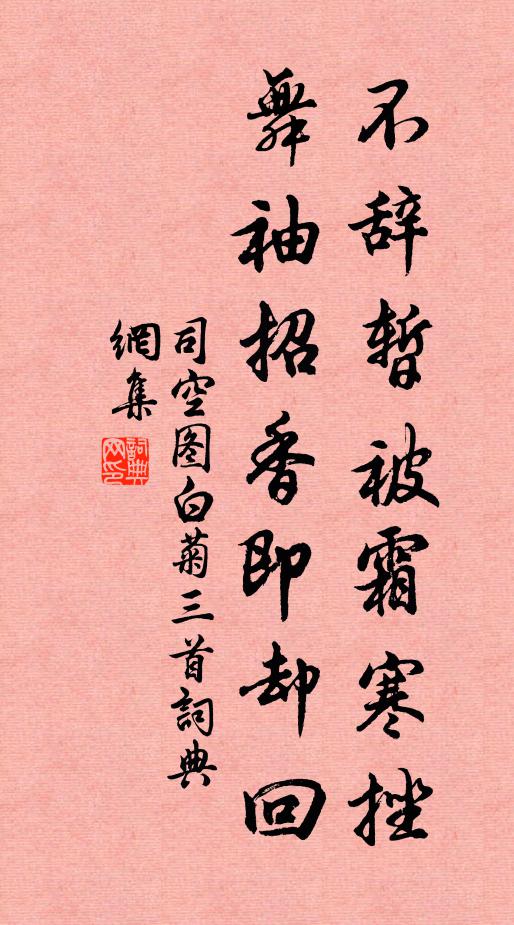 不辞暂被霜寒挫
舞袖招香即却回
司空图白菊三首詞典
網集
詞典网印